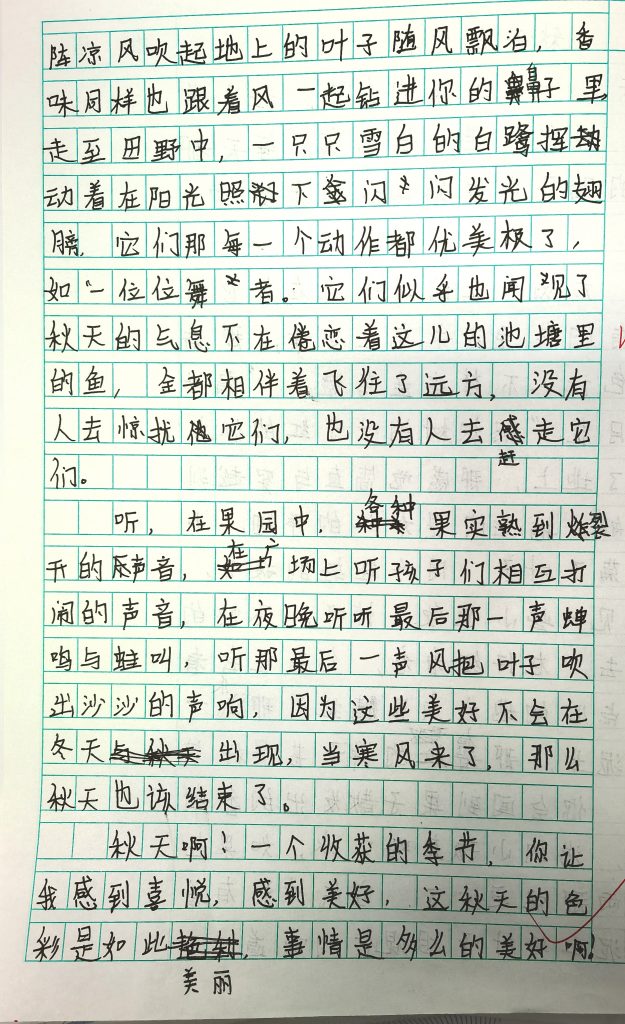 阵凉风吹起地上的叶子随风飘泊，香
味同样也跟着风一起钻进你的鼻子里，
走至田野中，一只只雪白的白鹭挥
动着在阳光照下闪闪发光的翅
膀，它们那每一个动作都优美极了，
如一位位舞者。它们似乎也闻见了
秋天的气息不在倦恋着这儿的池塘里
的鱼，全都相伴着飞往了远方，没有
人去惊扰它们，也没有人去赶走它
们。
听，在果园中，各种果实熟到炸裂
开的声音，在广场上听孩子们相互打
闹的声音，在夜晚听听最后那一声蝉
鸣与蛙叫，听那最后一声风把叶子吹
出沙沙的声响，因为这些美好不会在
冬天出现，当寒风来了，那么
秋天也该结束了。
秋天啊！一个收获的季节，你让
我感到喜悦，感到美好，这秋天的色
彩是如此美丽，事情是多么的美好啊！